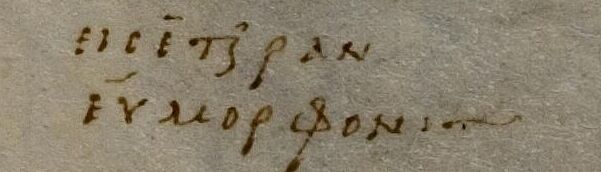 εις ἑταίραν
εὔμορφον :~